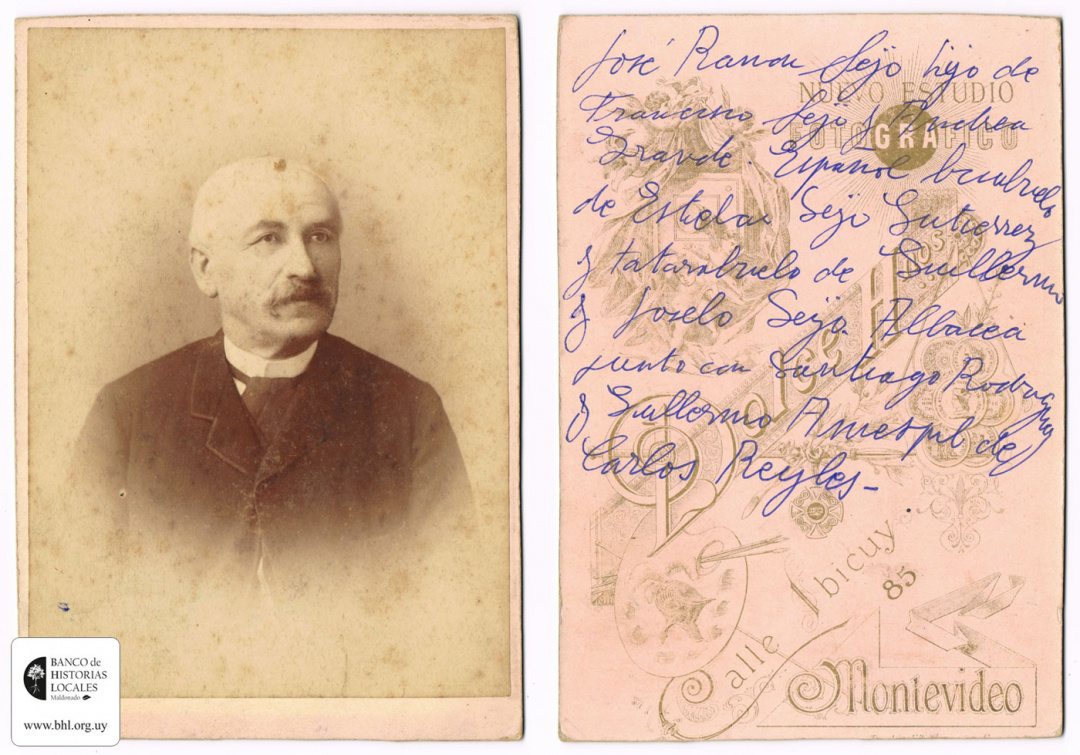 José Ramon Seijo hijo de
Francisco Seijo y Andrea
Grande. Español bisabuelo
de Esteban Seijo Gutierrez
y tatarabuelo de Guillermo
y Joselo Seijo. Albacea
junto con Santiago Rodriguez
y Guillermo de
Carlos Reyles-
NUEVO ESTUDIO
FOTOGRAFICO
José
Calle Ibicuy 85
Montevideo
BANCO de
HISTORIAS
LOCALES
Maldonado
www.bhl.org.uy